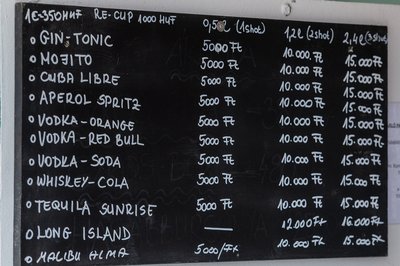 1€-350HUF RE-CUP 1000 HUF 0,5ℓ (1shot) 1,2ℓ (2shot) 2,4ℓ (3shot)
o GIN-TONIC 5000 Ft 10.000 Ft 15.000 Ft
o MOJITO 5000 Ft 10.000 Ft 15.000 Ft
o CUBA LIBRE 5000 Ft 10.000 Ft 15.000 Ft
o APEROL SPRITZ 5000 Ft 10.000 Ft 15.000 Ft
o VODKA-ORANGE 5000 Ft 10.000 Ft 15.000 Ft
o VODKA-RED BULL 5000 Ft 10.000 Ft 15.000 Ft
o VODKA-SODA 5000 Ft 10.000 Ft 15.000 Ft
o WHISKEY-COLA 5000 Ft 10.000 Ft 15.000 Ft
o TEQUILA SUNRISE 5000 Ft 10.000 Ft 15.000 Ft
o LONG ISLAND — 12000 Ft 16.000 Ft
o MALIBU ALMA 5000 Ft 10.000 Ft 15.000 Ft